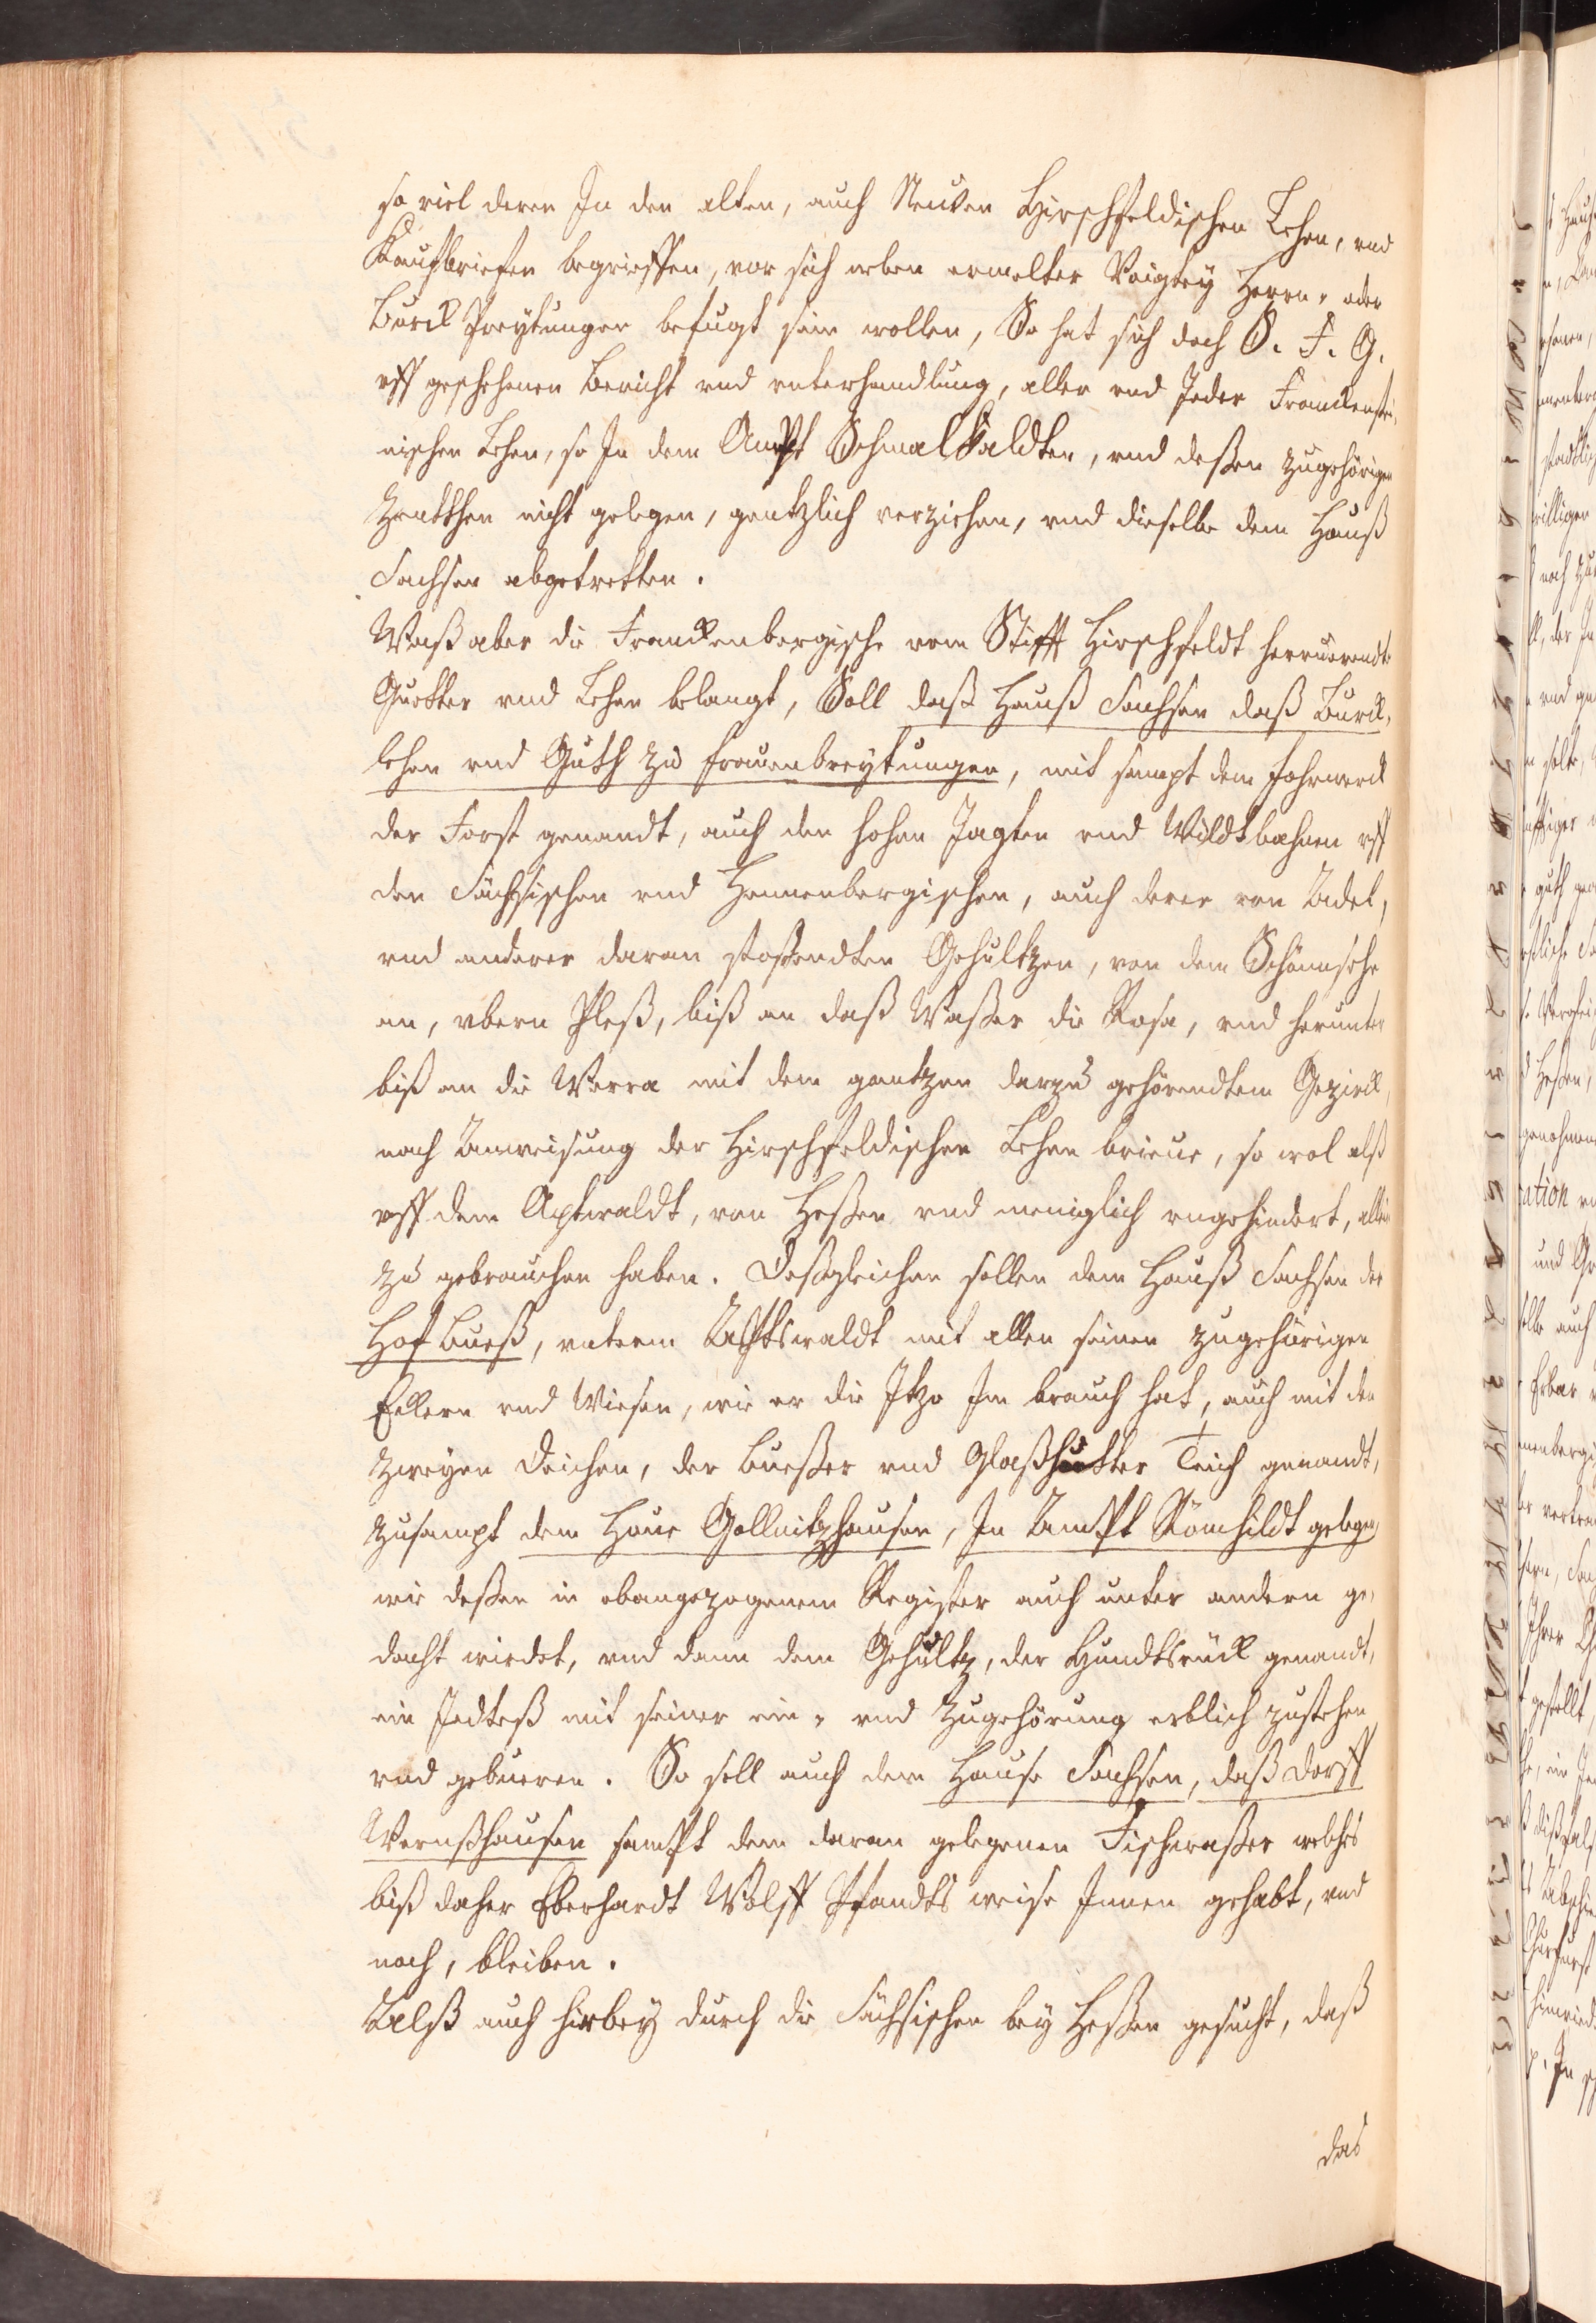 so viel deren In den alten, auch Neuen Hirschfeldischen Lehen, vnd
Kauffbriefen begrieffen, vor sich neben ermelter Voigtey Herrn- oder
Burck Preytungen befugt sein wollen, So hat sich doch S. F. G.
vff geschehenen Bericht vnd vnterhandlung, aller vnd Jeder Franckenstei-
nischen Lehen, so In dem Ampt Schmalkaldten, vnd deßen zugehörigen
Zentthen nicht gelegen, gentzlich verziehen, vnd dieselbe dem Hauß
Sachsen abgetretten.
Waß aber die Franckenbergische vom Stifft Hirschfeldt herruerendte
Guetter vnd Lehen belangt, Soll daß Hauß Sachsen daß Burck-
lehen vnd Guth zu frauenbreytungen, mit sampt dem fohrwerck
der Forst genandt, auch den hohen Jagten vnd Wildtbahnen vff
den Sächsischen vnd Hennenbergischen, auch derer von Adel,
vnd anderer daran stoßendten Gehultzen, von dem Schönnsehe
an, vbern Pleß, biß an daß Waßer die Rosa, vnd herunter
biß an die Werra mit dem gantzen darzu gehörendtem Gezirck,
nach Anweisung der Hirschfeldischen Lehen brieue, so wol alß
vff dem Aptwaldt, von Heßen vnd meniglich vngehindert, allein
zu gebrauchen haben. Deßgleichen sollen dem Hauß Sachsen der
Hof Bueß, vnterm Abtswaldt mit allen seinen zugehörigen
Eckern vnd Wiesen, wie er die Itzo Im brauch hat, auch mit den
zweyen Deichen, der Bueßer vnd Glaßhütter Teich genandt,
zusampt dem Houe Gollnitzhausen, In Ampt Römhildt gelegen,
wie deßen in obangezogenem Register auch unter andern ge-
dacht wirdet, vnd dann dem Gehültz, der Hundtsrück genandt,
ein Jedteß mit seiner ein- vnd Zugehörung erblich zustehen
vnd gebueren. So soll auch dem Hause Sachsen, daß Dorff
Wernßhausen sampt dem daran gelegenen Fischwaßer welches
biß daher Eberhardt Wolff Pfandts weise Innen gehabt, vnd
noch, bleiben.
Alß auch hirbey durch die Sächsischen bey Heßen gesucht, daß
das